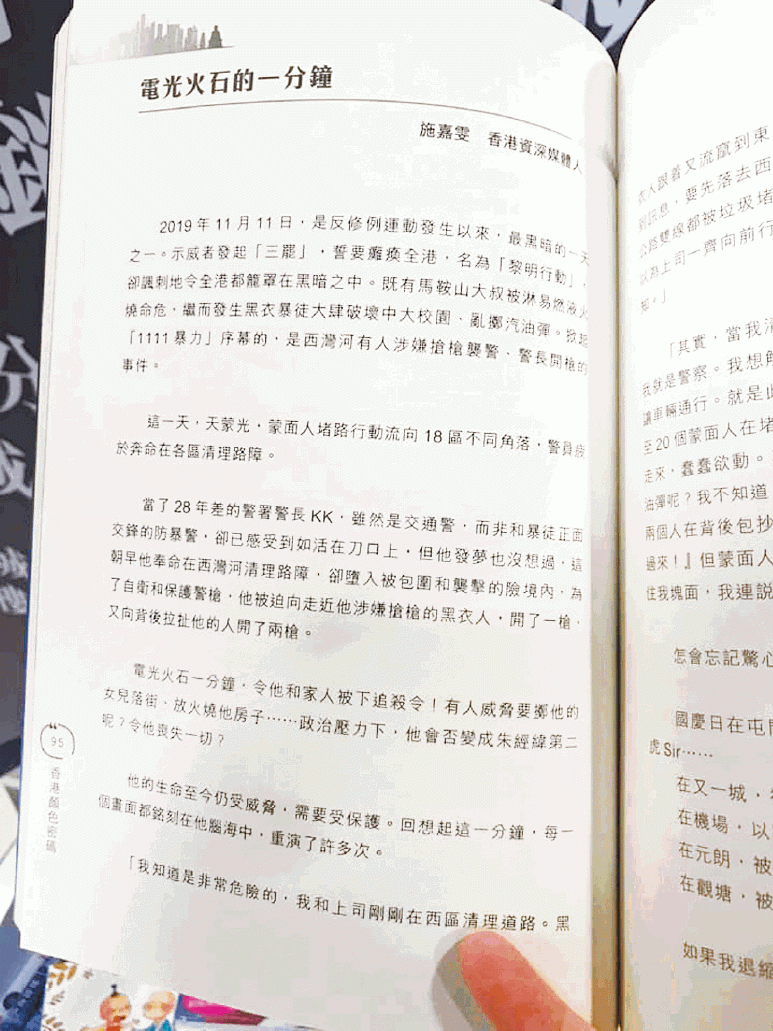 電光火石的一分鐘
施嘉雯　香港資深媒體人
2019年11月11日，是反修例運動發生以來，最黑暗的一天
之一。示威者發起「三罷」，誓要癱瘓全港，名為「黎明行動」，
卻諷刺地令全港都籠罩在黑暗之中。既有馬鞍山大叔被淋易燃液火
燒命危，繼而發生黑衣暴徒大肆破壞中大校園、亂擲汽油彈。掀起
「1111暴力」序幕的，是西灣河有人涉嫌搶槍襲警、警長開槍的
事件。
這一天，天蒙光，蒙面人堵路行動流向18區不同角落，警員疲
於奔命在各區清理路障。
當了28年差的警署警長KK，雖然是交通警，而非和暴徒正面
交鋒的防暴警，卻已感受到如活在刀口上，但他發夢也沒想過，這
朝早他奉命在西灣河清理路障，卻墮入被包圍和襲擊的險境內，為
了自衛和保護警槍，他被迫向走近他涉嫌搶槍的黑衣人，開了一槍，
又向背後拉扯他的人開了兩槍。
電光火石一分鐘，令他和家人被下追殺令！有人威脅要擲他的
女兒落街、放火燒他房子⋯⋯政治壓力下，他會否變成朱經緯第二
呢？令他喪失一切？
他的生命至今仍受威脅，需要受保護。回想起這一分鐘，每一
個畫面都銘刻在他腦海中，重演了許多次。
「我知道是非常危險的，我和上司剛剛在西區清理道路。黑
95
香港顏色密碼
衣人跟着又流竄到東
到訊息，要先落去西
公路雙線都被垃圾堵
以為上司一齊向前行
知。」
「其實，當我清
我就是警察。我想解
讓車輛通行。就是此
至20個蒙面人在堵
走來，蠢蠢欲動。
油彈呢？我不知道
兩個人在背後包抄
過來！』但蒙面人
住我塊面，我連說
怎會忘記驚心
國慶日在屯門
虎Sir⋯⋯
在又一城，
在機場，以
在元朗，被
在觀塘，被
如果我退縮